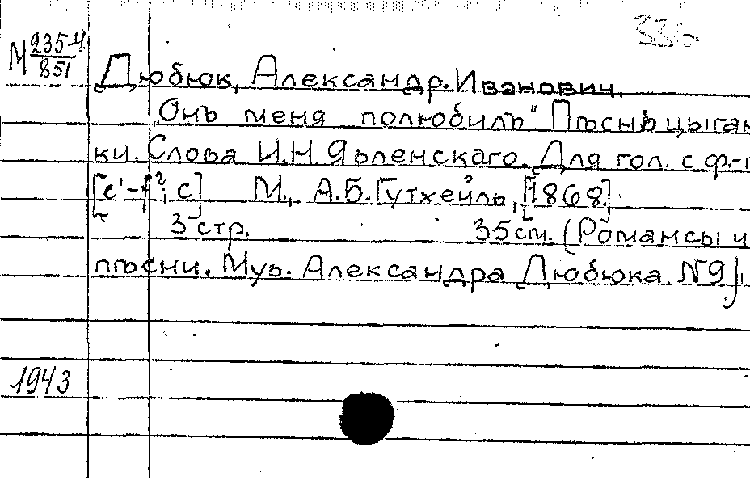 336
М 235-4/851
Дюбюк, Александр Иванович.
„Онъ меня полюбилъ" Пѣснь цыган
ки. Слова И.Н. Явленскаго. Для гол. с ф-п
[c¹-f²; c] М., А.Б. Гутхейль, [1868]
3 стр. 35 см. (Романсы и
пѣсни. Муз. Александра Дюбюка. N9)
1943